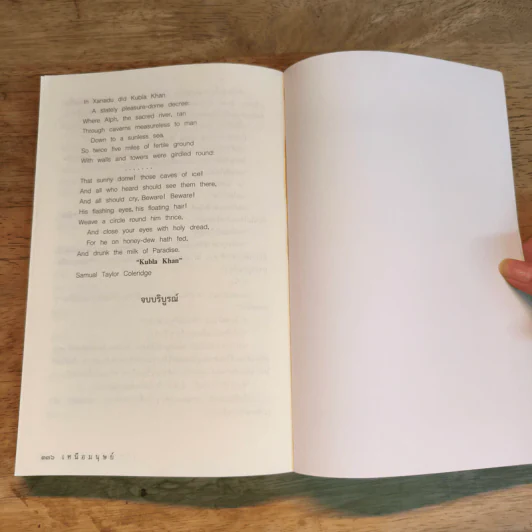 In Xanadu did Kubla Khan
A stately pleasure-dome decree:
Where Alph, the sacred river, ran
Through caverns measureless to man
Down to a sunless sea.
So twice five miles of fertile ground
With walls and towers were girdled round:
.......
That sunny dome! those caves of ice!
And all who heard should see them there,
And all should cry, Beware! Beware!
His flashing eyes, his floating hair!
Weave a circle round him thrice,
And close your eyes with holy dread,
For he on honey-dew hath fed,
And drunk the milk of Paradise.
"Kubla Khan"
Samual Taylor Coleridge
จบบริบูรณ์
เหนือมนุษย์